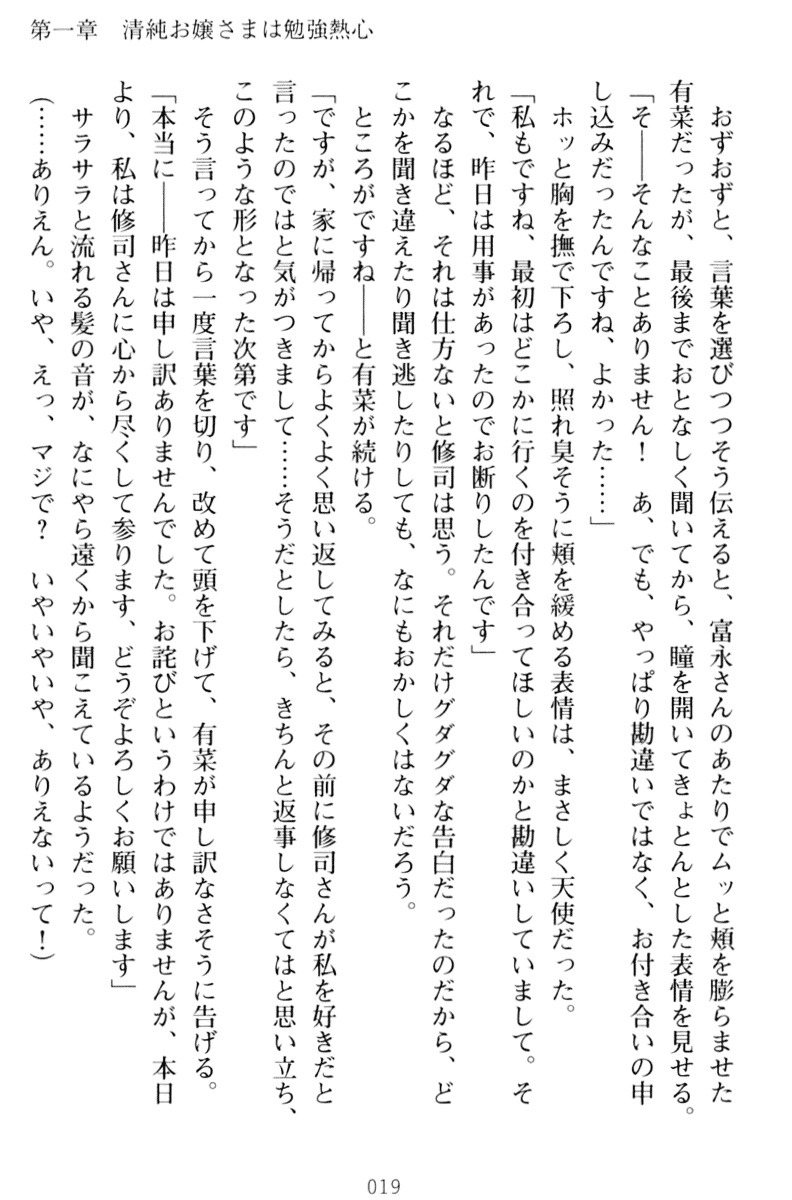 第一章　清純お嬢さまは勉強熱心
　おずおずと、言葉を選びつつそう伝えると、富永さんのあたりでムッと頬を膨らませた
有菜だったが、最後までおとなしく聞いてから、瞳を開いてきょとんとした表情を見せる。
「そ――そんなことありません！　あ、でも、やっぱり勘違いではなく、お付き合いの申
し込みだったんですね、よかった……」
　ホッと胸を撫で下ろし、照れ臭そうに頬を緩める表情は、まさしく天使だった。
「私もですね、最初はどこかに行くのを付き合ってほしいのかと勘違いしていまして。そ
れで、昨日は用事があったのでお断りしたんです」
　なるほど、それは仕方ないと修司は思う。それだけグダグダな告白だったのだから、ど
こかを聞き違えたり聞き逃したりしても、なにもおかしくはないだろう。
　ところがですね――と有菜が続ける。
「ですが、家に帰ってからよくよく思い返してみると、その前に修司さんが私を好きだと
言ったのではと気がつきまして……そうだとしたら、きちんと返事しなくてはと思い立ち、
このような形となった次第です」
　そう言ってから一度言葉を切り、改めて頭を下げて、有菜が申し訳なさそうに告げる。
「本当に――昨日は申し訳ありませんでした。お詫びというわけではありませんが、本日
より、私は修司さんに心から尽くして参ります、どうぞよろしくお願いします」
　サラサラと流れる髪の音が、なにやら遠くから聞こえているようだった。
（……ありえん。いや、えっ、マジで？　いやいやいや、ありえないって！）
019